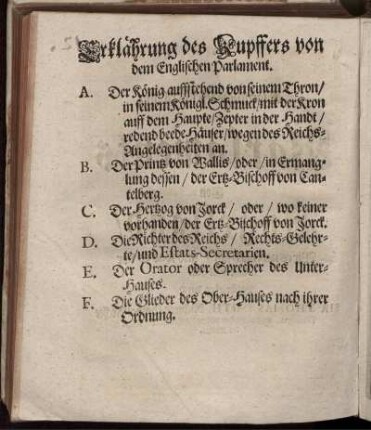 Erklährung des Kupffers von
dem Englischen Parlament.
A. Der König auffstehend von seinem Thron/
in seinem Königl. Schmuck/mit der Kron
auff dem Haupte/Zepter in der Handt/
redend beede Häuser/wegen des Reichs-
Angelegenheiten an.
B. Der Printz von Wallis/oder/in Ermang-
lung dessen/der Ertz-Bischoff von Can-
telberg.
C. Der Hertzog von Jorck/ oder/ wo keiner
vorhanden/der Ertz-Bischoff von Jorck.
D. Die Richter des Reichs/ Rechts-Gelehr-
te/und Estats-Secretarien.
E. Der Orator oder Sprecher des Unter-
Hauses.
F. Die Glieder des Ober-Hauses nach ihrer
Ordnung.